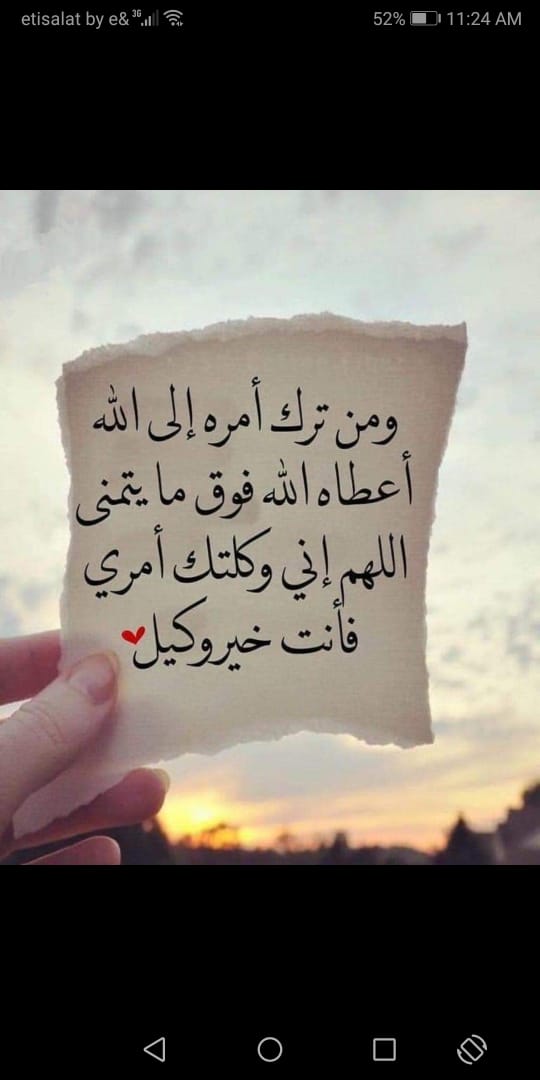 etisalat by e& 3G 52% 11:24 AM
ومن ترك أمره إلى الله
أعطاه الله فوق ما يتمنى
اللهم إني وكلتك أمري
فأنت خير وكيل